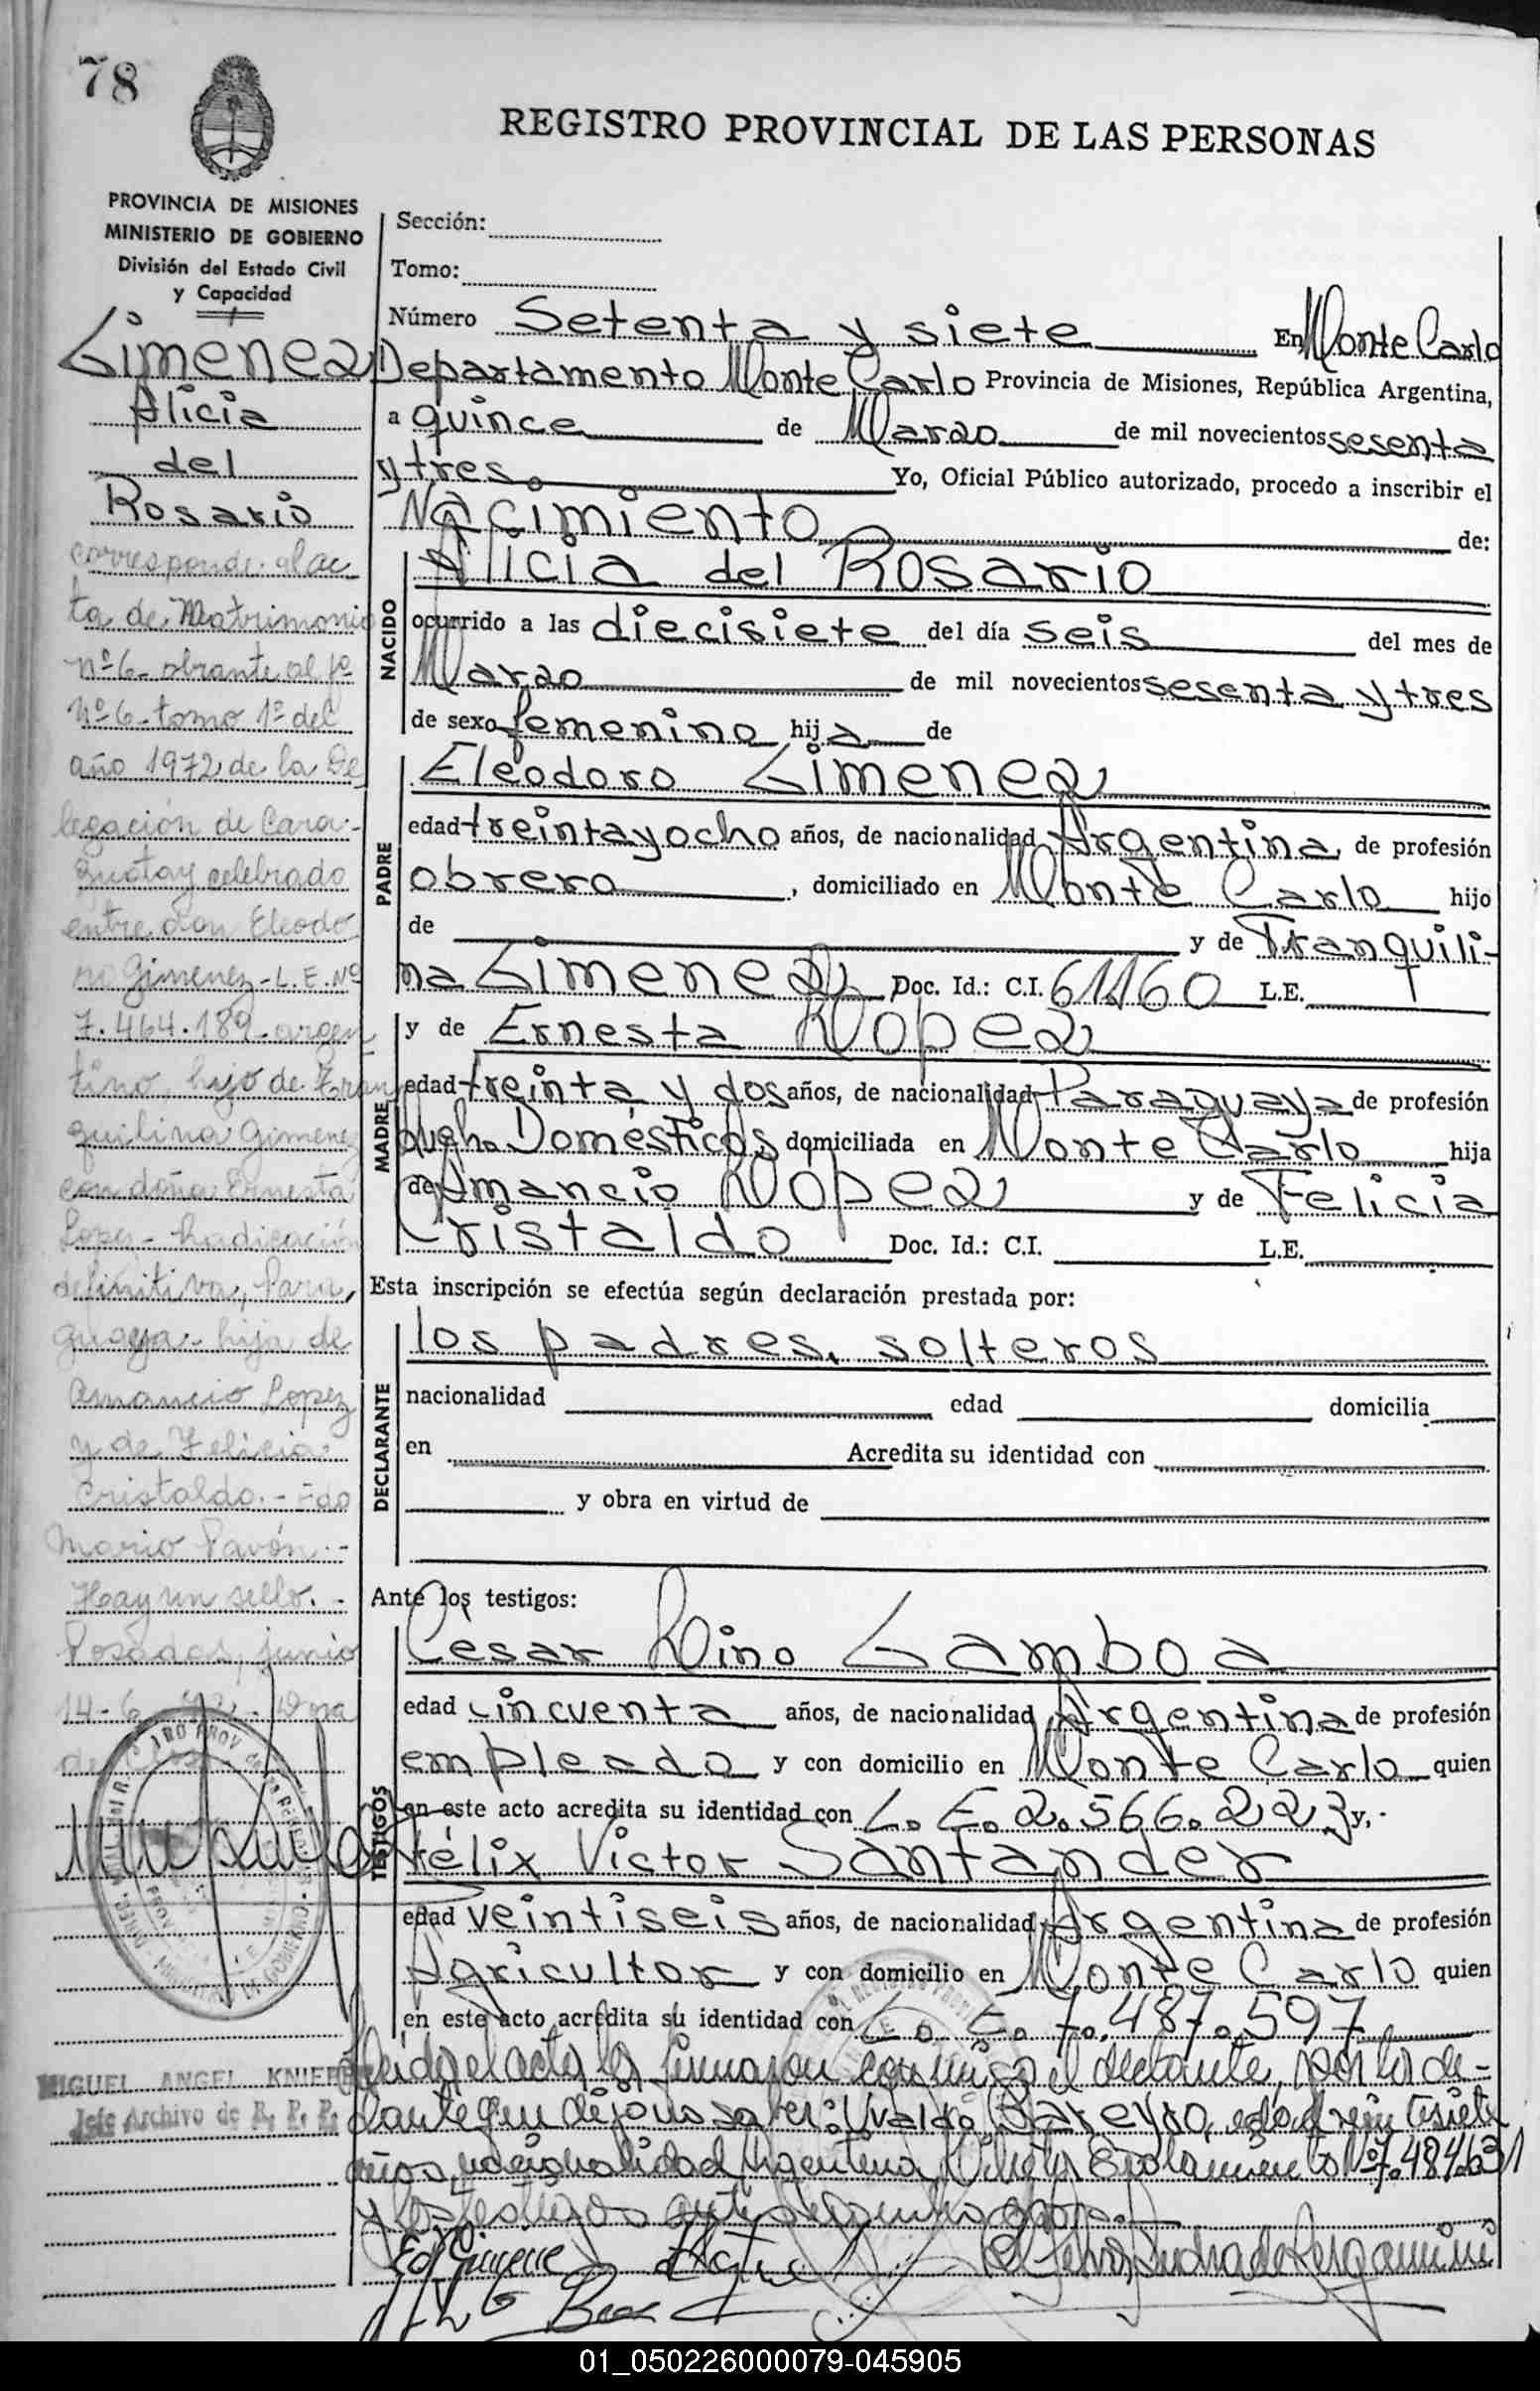 78
REGISTRO PROVINCIAL DE LAS PERSONAS
PROVINCIA DE MISIONES
MINISTERIO DE GOBIERNO
División del Estado Civil
y Capacidad
Gimenez
Alicia
del
Rosario
corresponde al ac
ta de Matrimonio
Nº 6 - obrante al fº
Nº 6 - tomo 1º del
año 1972 de la De
legación de Cara-
guatay celebrado
entre don Eleodo
ro Gimenez - L. E. Nº
7.464.189 - argen
tino, hijo de Tran
quilina Gimenez
con doña Ernesta
Lopez - Radicación
definitiva, Para,
guaya - hija de
Amancio Lopez
y de Felicia
Cristaldo. - Fdo
Mario Pavón. -
Hay un sello. -
Posadas, junio
14 - 6
MIGUEL ANGEL
Jefe Archivo de R. P. P.
Sección:
Tomo:
Número Setenta y siete En Monte Carlo
Departamento Monte Carlo Provincia de Misiones, República Argentina,
a quince de Marzo de mil novecientos sesenta
y tres. Yo, Oficial Público autorizado, procedo a inscribir el
Nacimiento de:
NACIDO
Alicia del Rosario
ocurrido a las diecisiete del día seis del mes de
Marzo de mil novecientos sesenta y tres
de sexo femenino hija de
PADRE
Eleodoro Gimenez
edad treinta y ocho años, de nacionalidad Argentina, de profesión
obrero, domiciliado en Monte Carlo hijo
de y de Tranquili-
na Gimenez Doc. Id.: C.I. 61.160 L.E.
MADRE
y de Ernesta Lopez
edad treinta y dos años, de nacionalidad Paraguaya de profesión
Domésticos domiciliada en Monte Carlo hija
de Amancio Lopez y de Felicia
Cristaldo Doc. Id.: C.I. L.E.
Esta inscripción se efectúa según declaración prestada por:
DECLARANTE
los padres. solteros
nacionalidad edad domicilia
en Acredita su identidad con
y obra en virtud de
Ante los testigos:
TESTIGOS
César Lino Gamboa
edad cincuenta años, de nacionalidad Argentina de profesión
empleado y con domicilio en Monte Carlo quien
en este acto acredita su identidad con L. E. 2.566.223 y,.
Félix Victor Santander
edad veintiseis años, de nacionalidad Argentina de profesión
Agricultor y con domicilio en Monte Carlo quien
en este acto acredita su identidad con L. E. 7.487.597
Leída el acta la firmaron conmigo el declante, por la de-
clante que dijo no saber: Uvaldo Bareyro, edad veintisiete
años, nacionalidad Argentina, Libreta Enrolamiento Nº 7.484.631
y los testigos
01_050226000079-045905